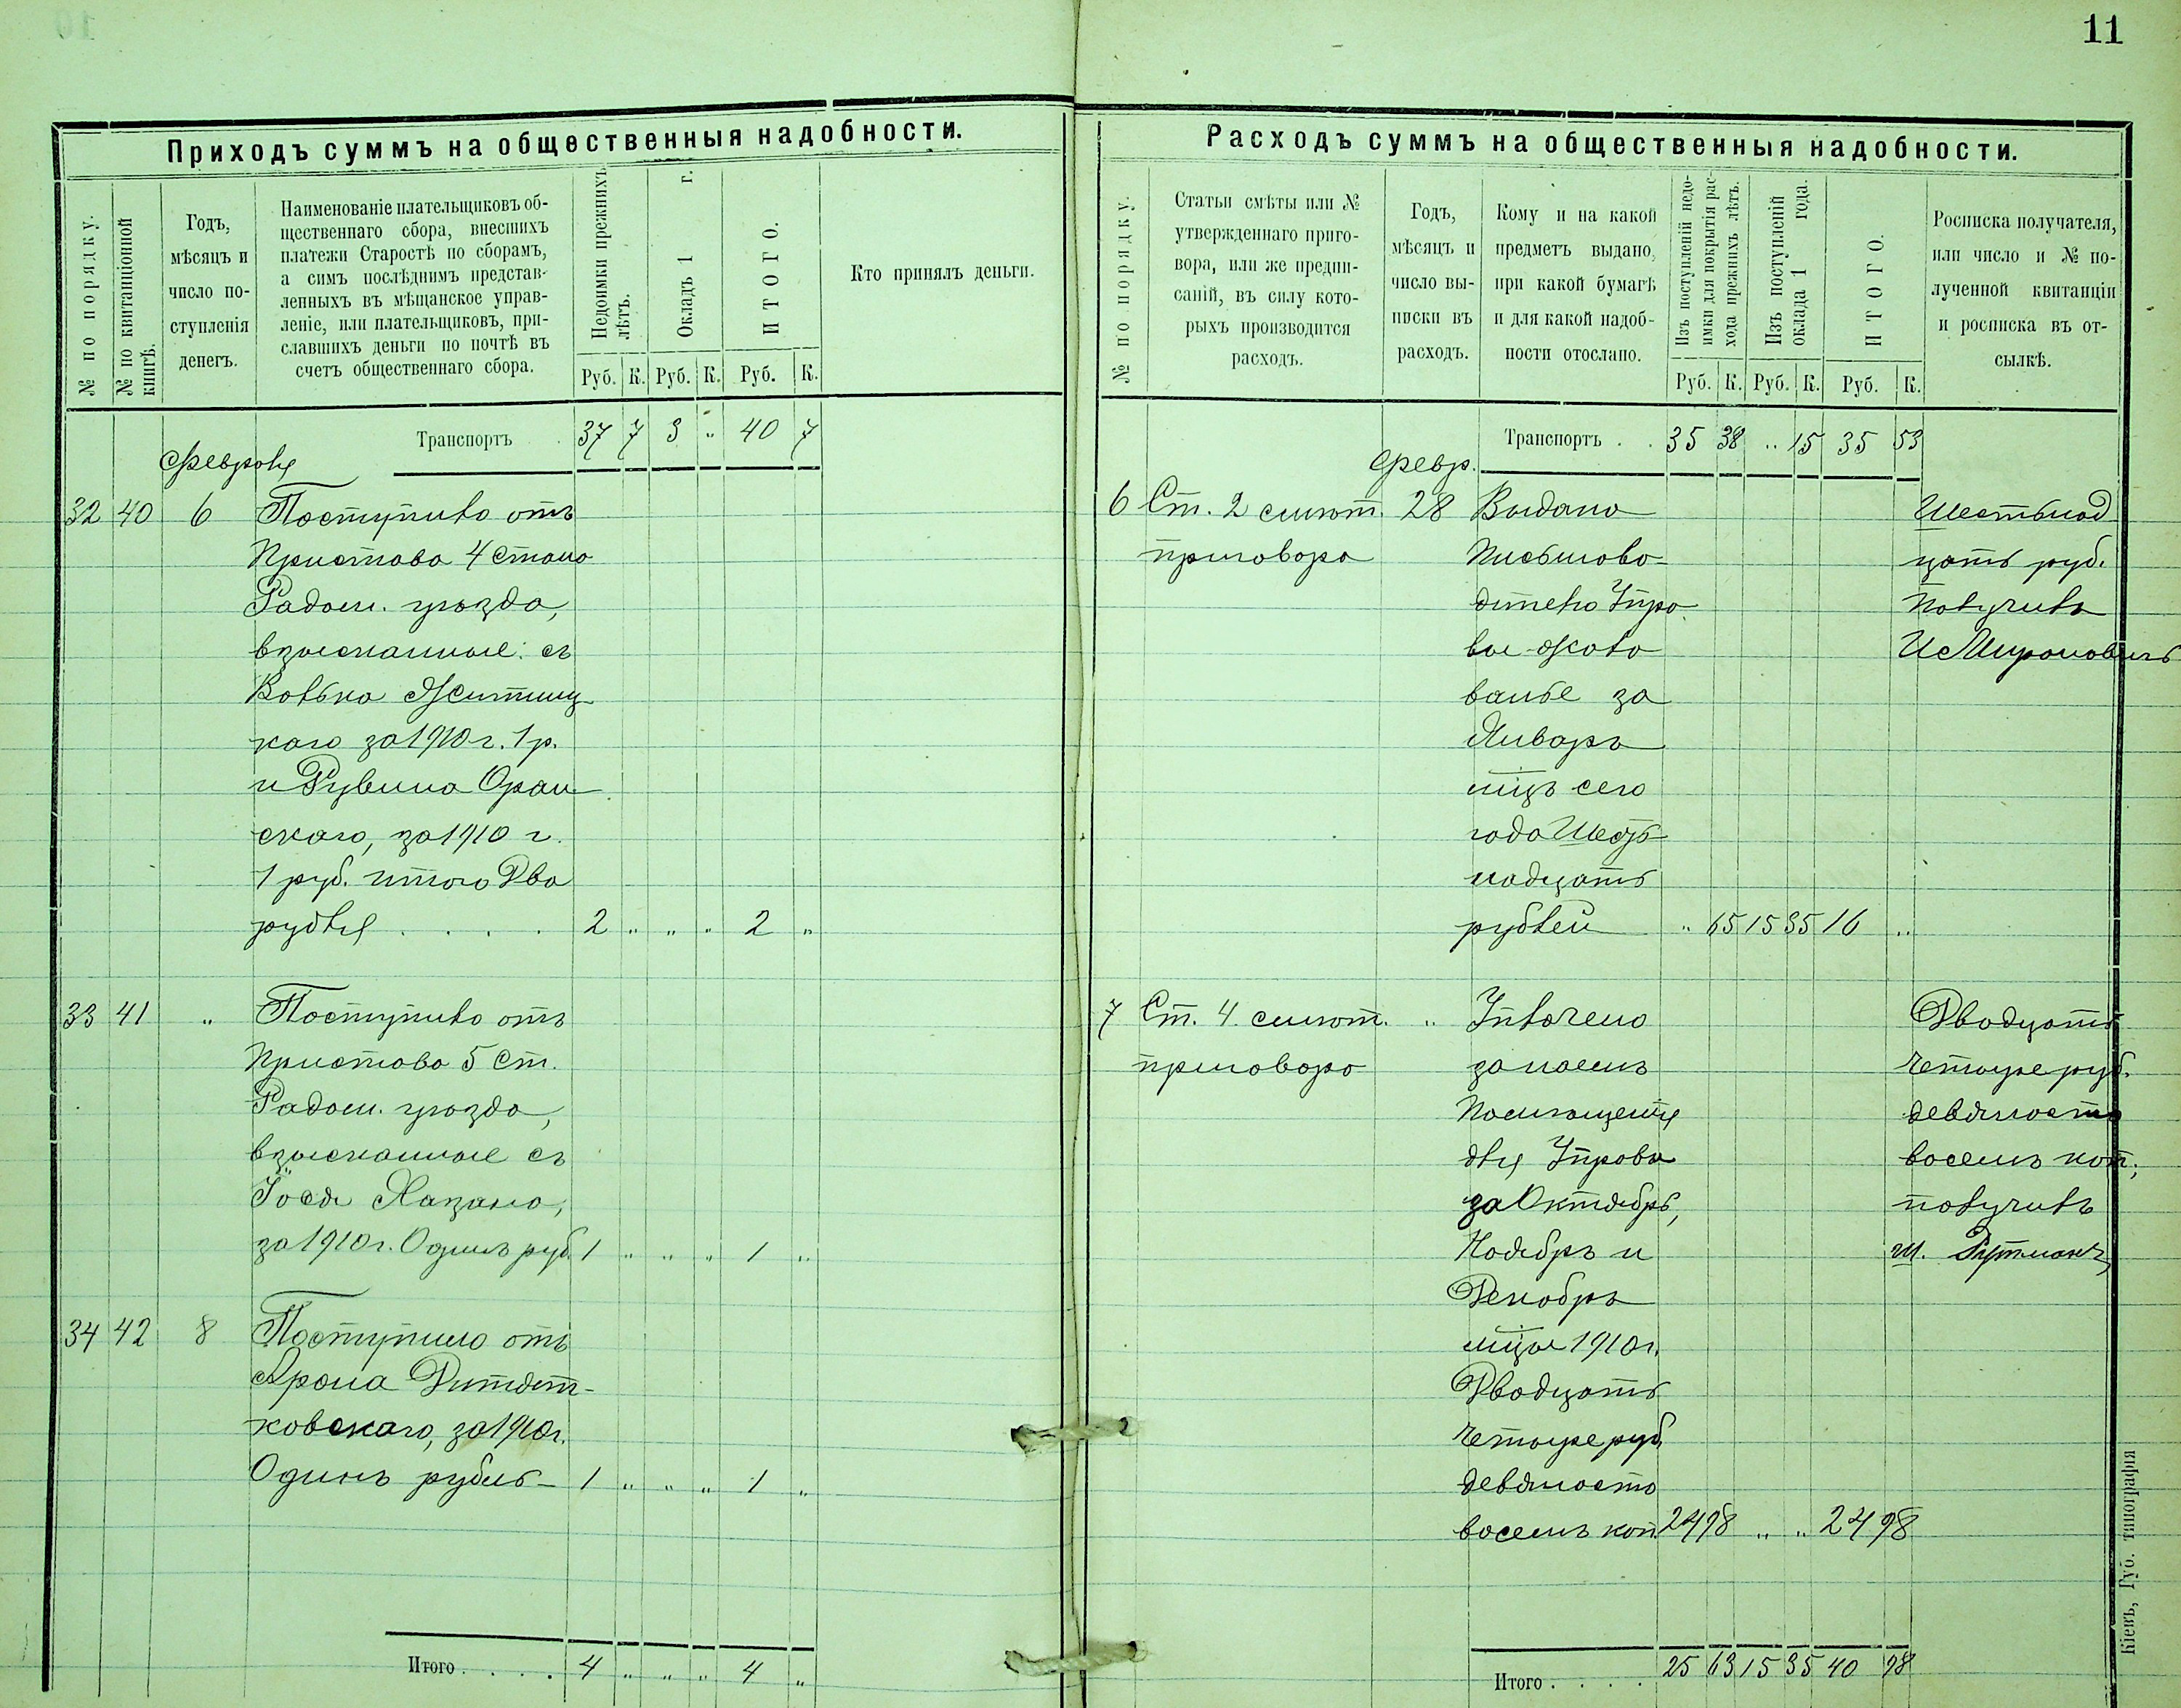 11
Приходъ суммъ на общественныя надобности.
№ по порядку.
№ по квитанціонной книгѣ.
Годъ,
мѣсяцъ и
число по-
ступленія
денегъ.
Наименованіе плательщиковъ об-
щественнаго сбора, внесшихъ
платежи Старостѣ по сборамъ,
а симъ послѣднимъ представ-
ленныхъ въ мѣщанское управ-
леніе, или плательщиковъ, при-
славшихъ деньги по почтѣ въ
счетъ общественнаго сбора.
Недоимки прежнихъ
лѣтъ.
Окладъ 1 г.
ИТОГО.
Кто принялъ деньги.
Руб. К. Руб. К. Руб. К.
Транспортъ 37 7 3 „ 40 7
Февраля
32 40 6 Поступило отъ
Пристава 4 стана
Радом. уѣзда,
взысканные съ
Волька Житниц-
каго за 1910 г. 1 р.
и Рувина Оран-
скаго, за 1910 г.
1 руб. итого Два
рубля . . . . 2 „ „ „ 2 „
33 41 „ Поступило отъ
Пристава 5 ст.
Радом. уѣзда,
взысканные съ
Іося Хазана,
за 1910 г. Одинъ руб. 1 „ „ „ 1 „
34 42 8 Поступило отъ
Арона
ковскаго, за 1910 г.
Одинъ рубль – 1 „ „ „ 1 „
Итого . . . . 4 „ „ „ 4 „
Расходъ суммъ на общественныя надобности.
№ по порядку.
Статьи смѣты или №
утвержденнаго приго-
вора, или же предпи-
саній, въ силу кото-
рыхъ производится
расходъ.
Годъ,
мѣсяцъ и
число вы-
писки въ
расходъ.
Кому и на какой
предметъ выдано,
при какой бумагѣ
и для какой надоб-
ности отослано.
Изъ поступленій недо-
имки для покрытія рас-
хода прежнихъ лѣтъ.
Изъ поступленій
оклада 1 года.
ИТОГО.
Росписка получателя,
или число и № по-
лученной квитанціи
и росписка въ от-
сылкѣ.
Руб. К. Руб. К. Руб. К.
Транспортъ . . 35 38 „ 15 35 53
Февр.
6 Ст. 2 смѣт. 28 Выдано Шестьнад
приговора Письмово- цать руб.
дителю Упра- получилъ
вы жало И Мироновичъ
ванье за
Январь
мцъ сего
года Шесть
надцать
рублей „ 65 15 35 16 „
7 Ст. 4 смѣт. „ Уплачено Двадцать
приговора за наемъ четыре руб.
Помѣщенія девяносто
для Управы восемь коп.,
за Октябрь, получилъ
Ноябрь и Ш. Рутманъ
Декабрь
мцы 1910 г.
Двадцать
четыре руб.
девяносто
восемь коп. 24 98 „ „ 24 98
Итого . . . . 25 63 15 35 40 98
Кіевъ, Губ. типографія